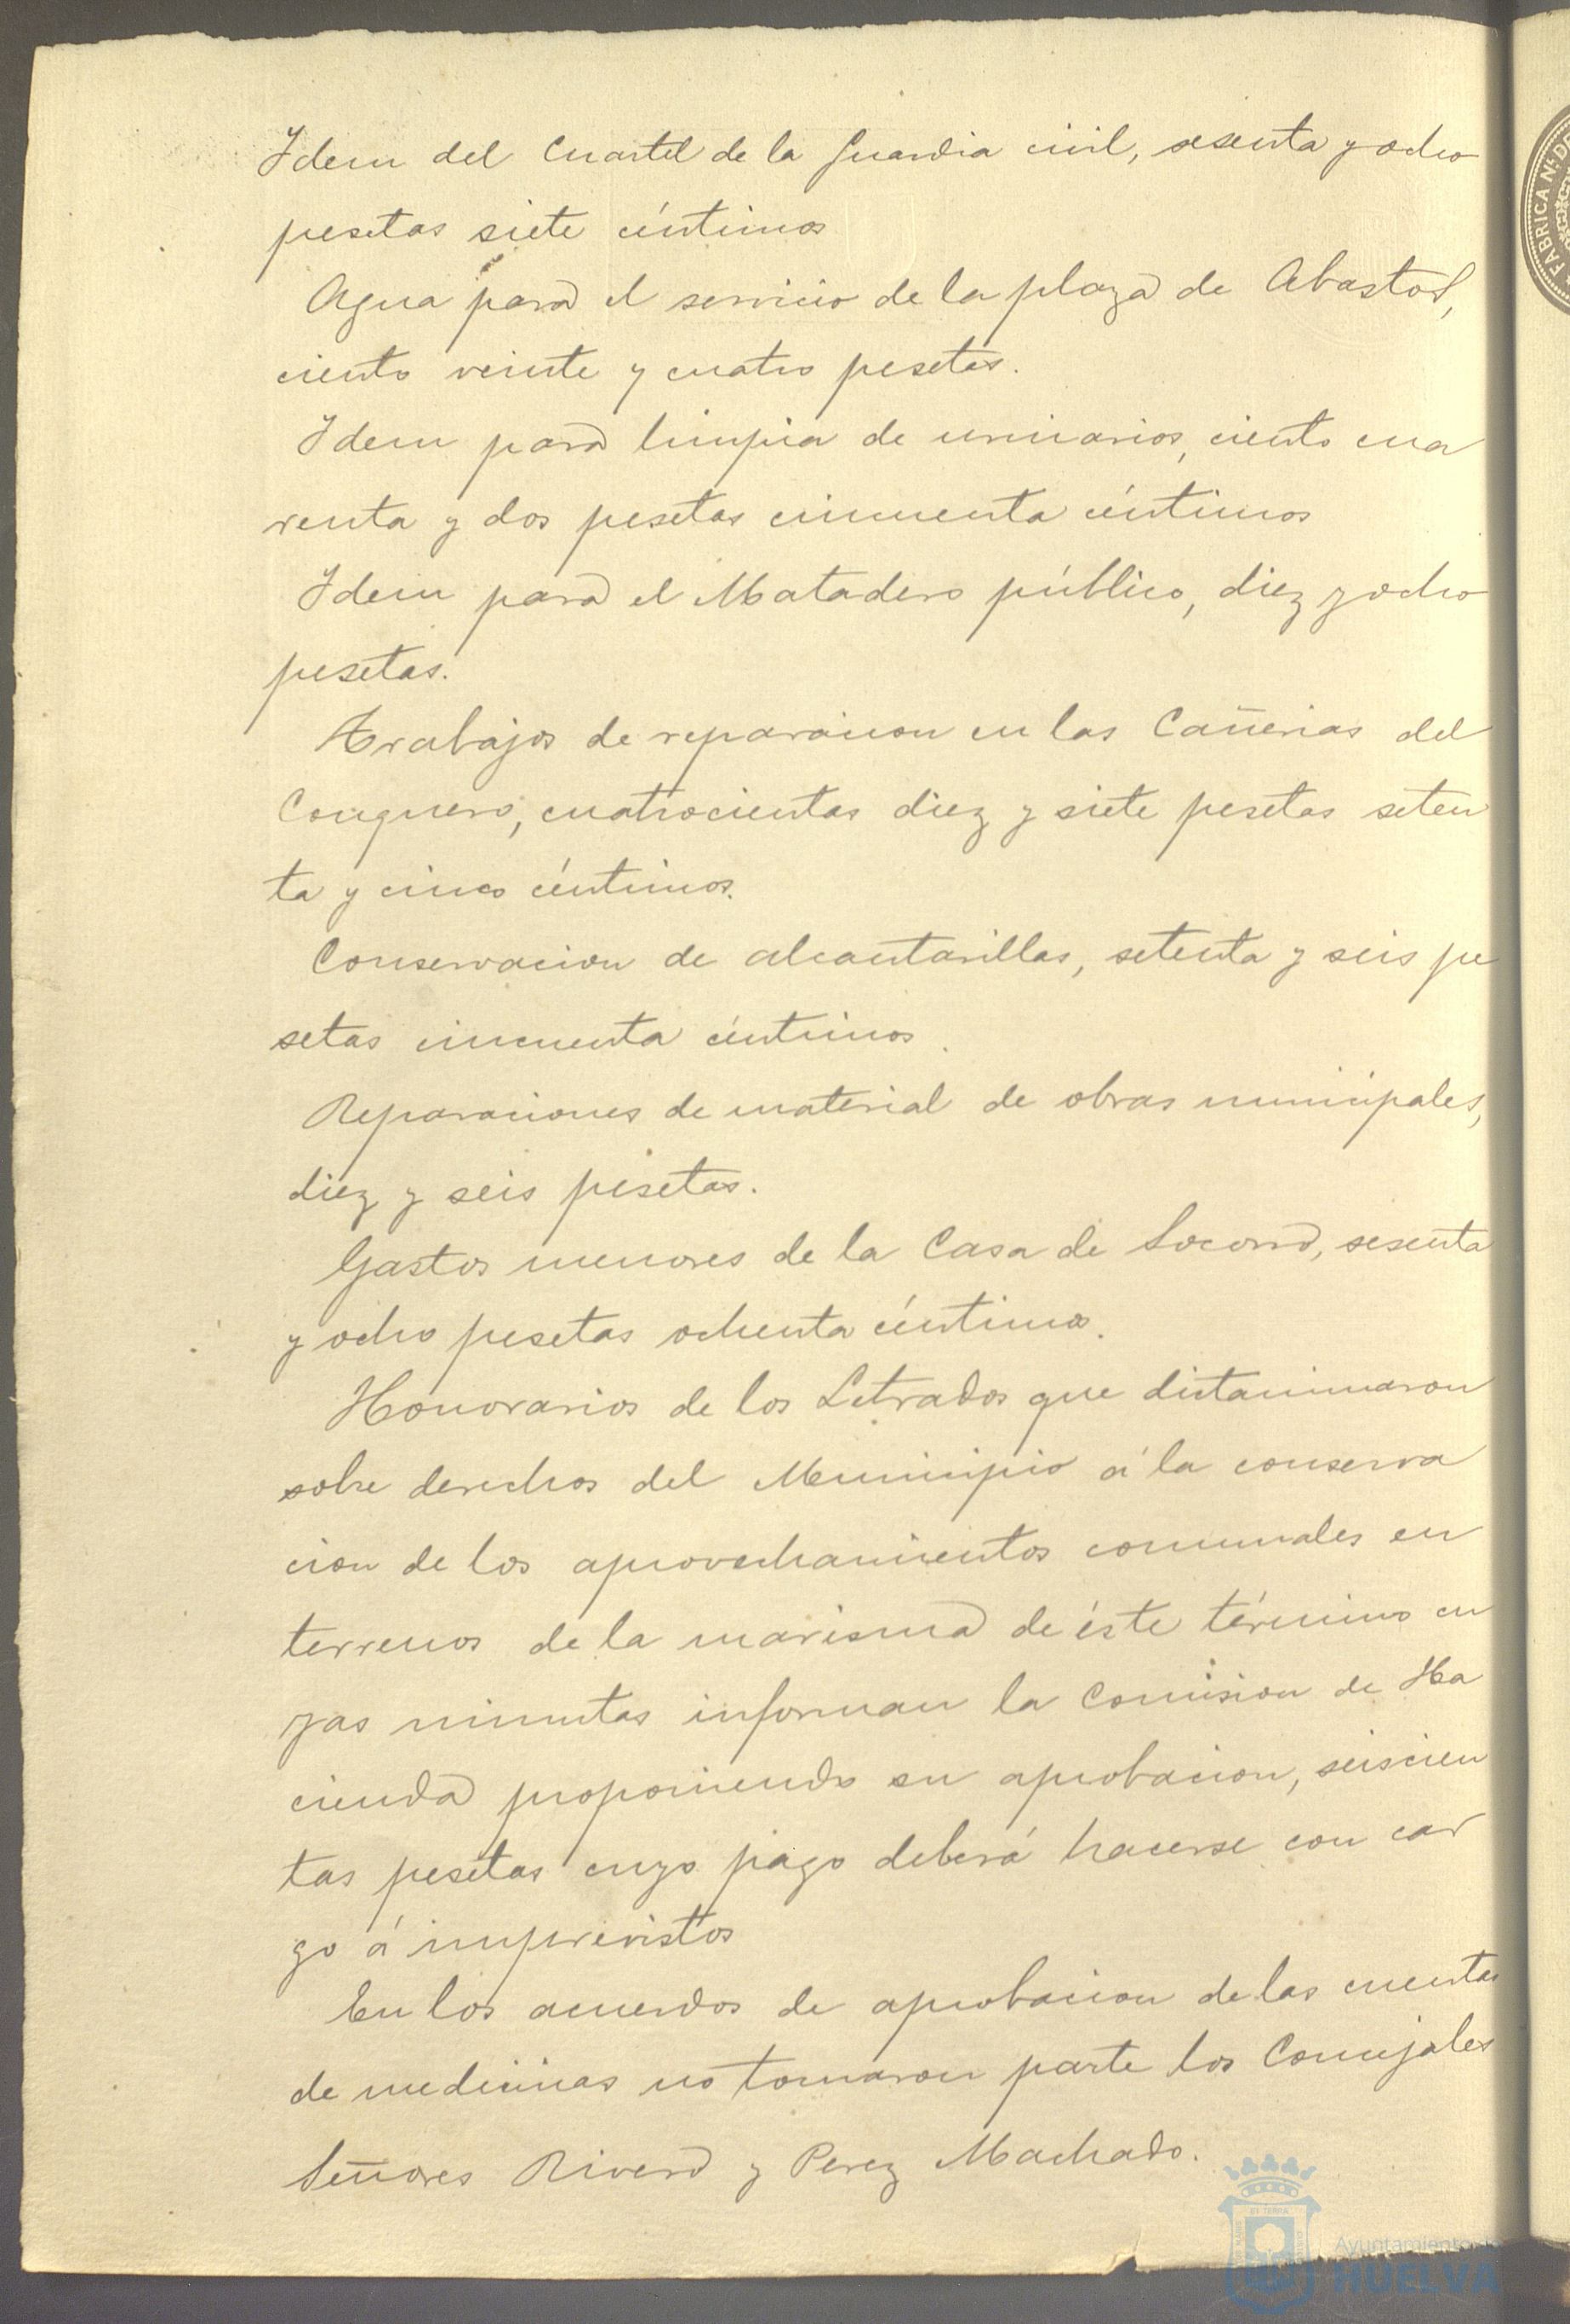 Idem del Cuartel de la Guardia civil, sesenta y ocho
pesetas siete céntimos
Agua para el servicio de la plaza de Abastos,
ciento veinte y cuatro pesetas.
Idem para limpia de urinarios, ciento cua
renta y dos pesetas cincuenta céntimos
Idem para el Matadero público, diez y ocho
pesetas.
Trabajos de reparacion en las Cañerias del
Conquero, cuatrocientas diez y siete pesetas seten
ta y cinco céntimos.
Conservacion de alcantarillas, setenta y seis pe
setas cincuenta céntimos.
Reparaciones de material de obras municipales,
diez y seis pesetas.
Gastos menores de la Casa de Socorro, sesenta
y ocho pesetas ochenta céntimos.
Honorarios de los Letrados que dictaminaron
sobre derechos del Municipio á la conserva
cion de los aprovechamientos comunales en
terrenos de la marisma de éste término cu
yas minutas informan la Comision de Ha
cienda proponiendo su aprobacion, seiscien
tas pesetas cuyo pago deberá hacerse con car
go á imprevistos
En los acuerdos de aprobacion de las cuentas
de medicinas no tomaron parte los Concejales
Señores Rivero y Perez Machado.
FABRICA NL DE
Ayuntamiento
HUELVA